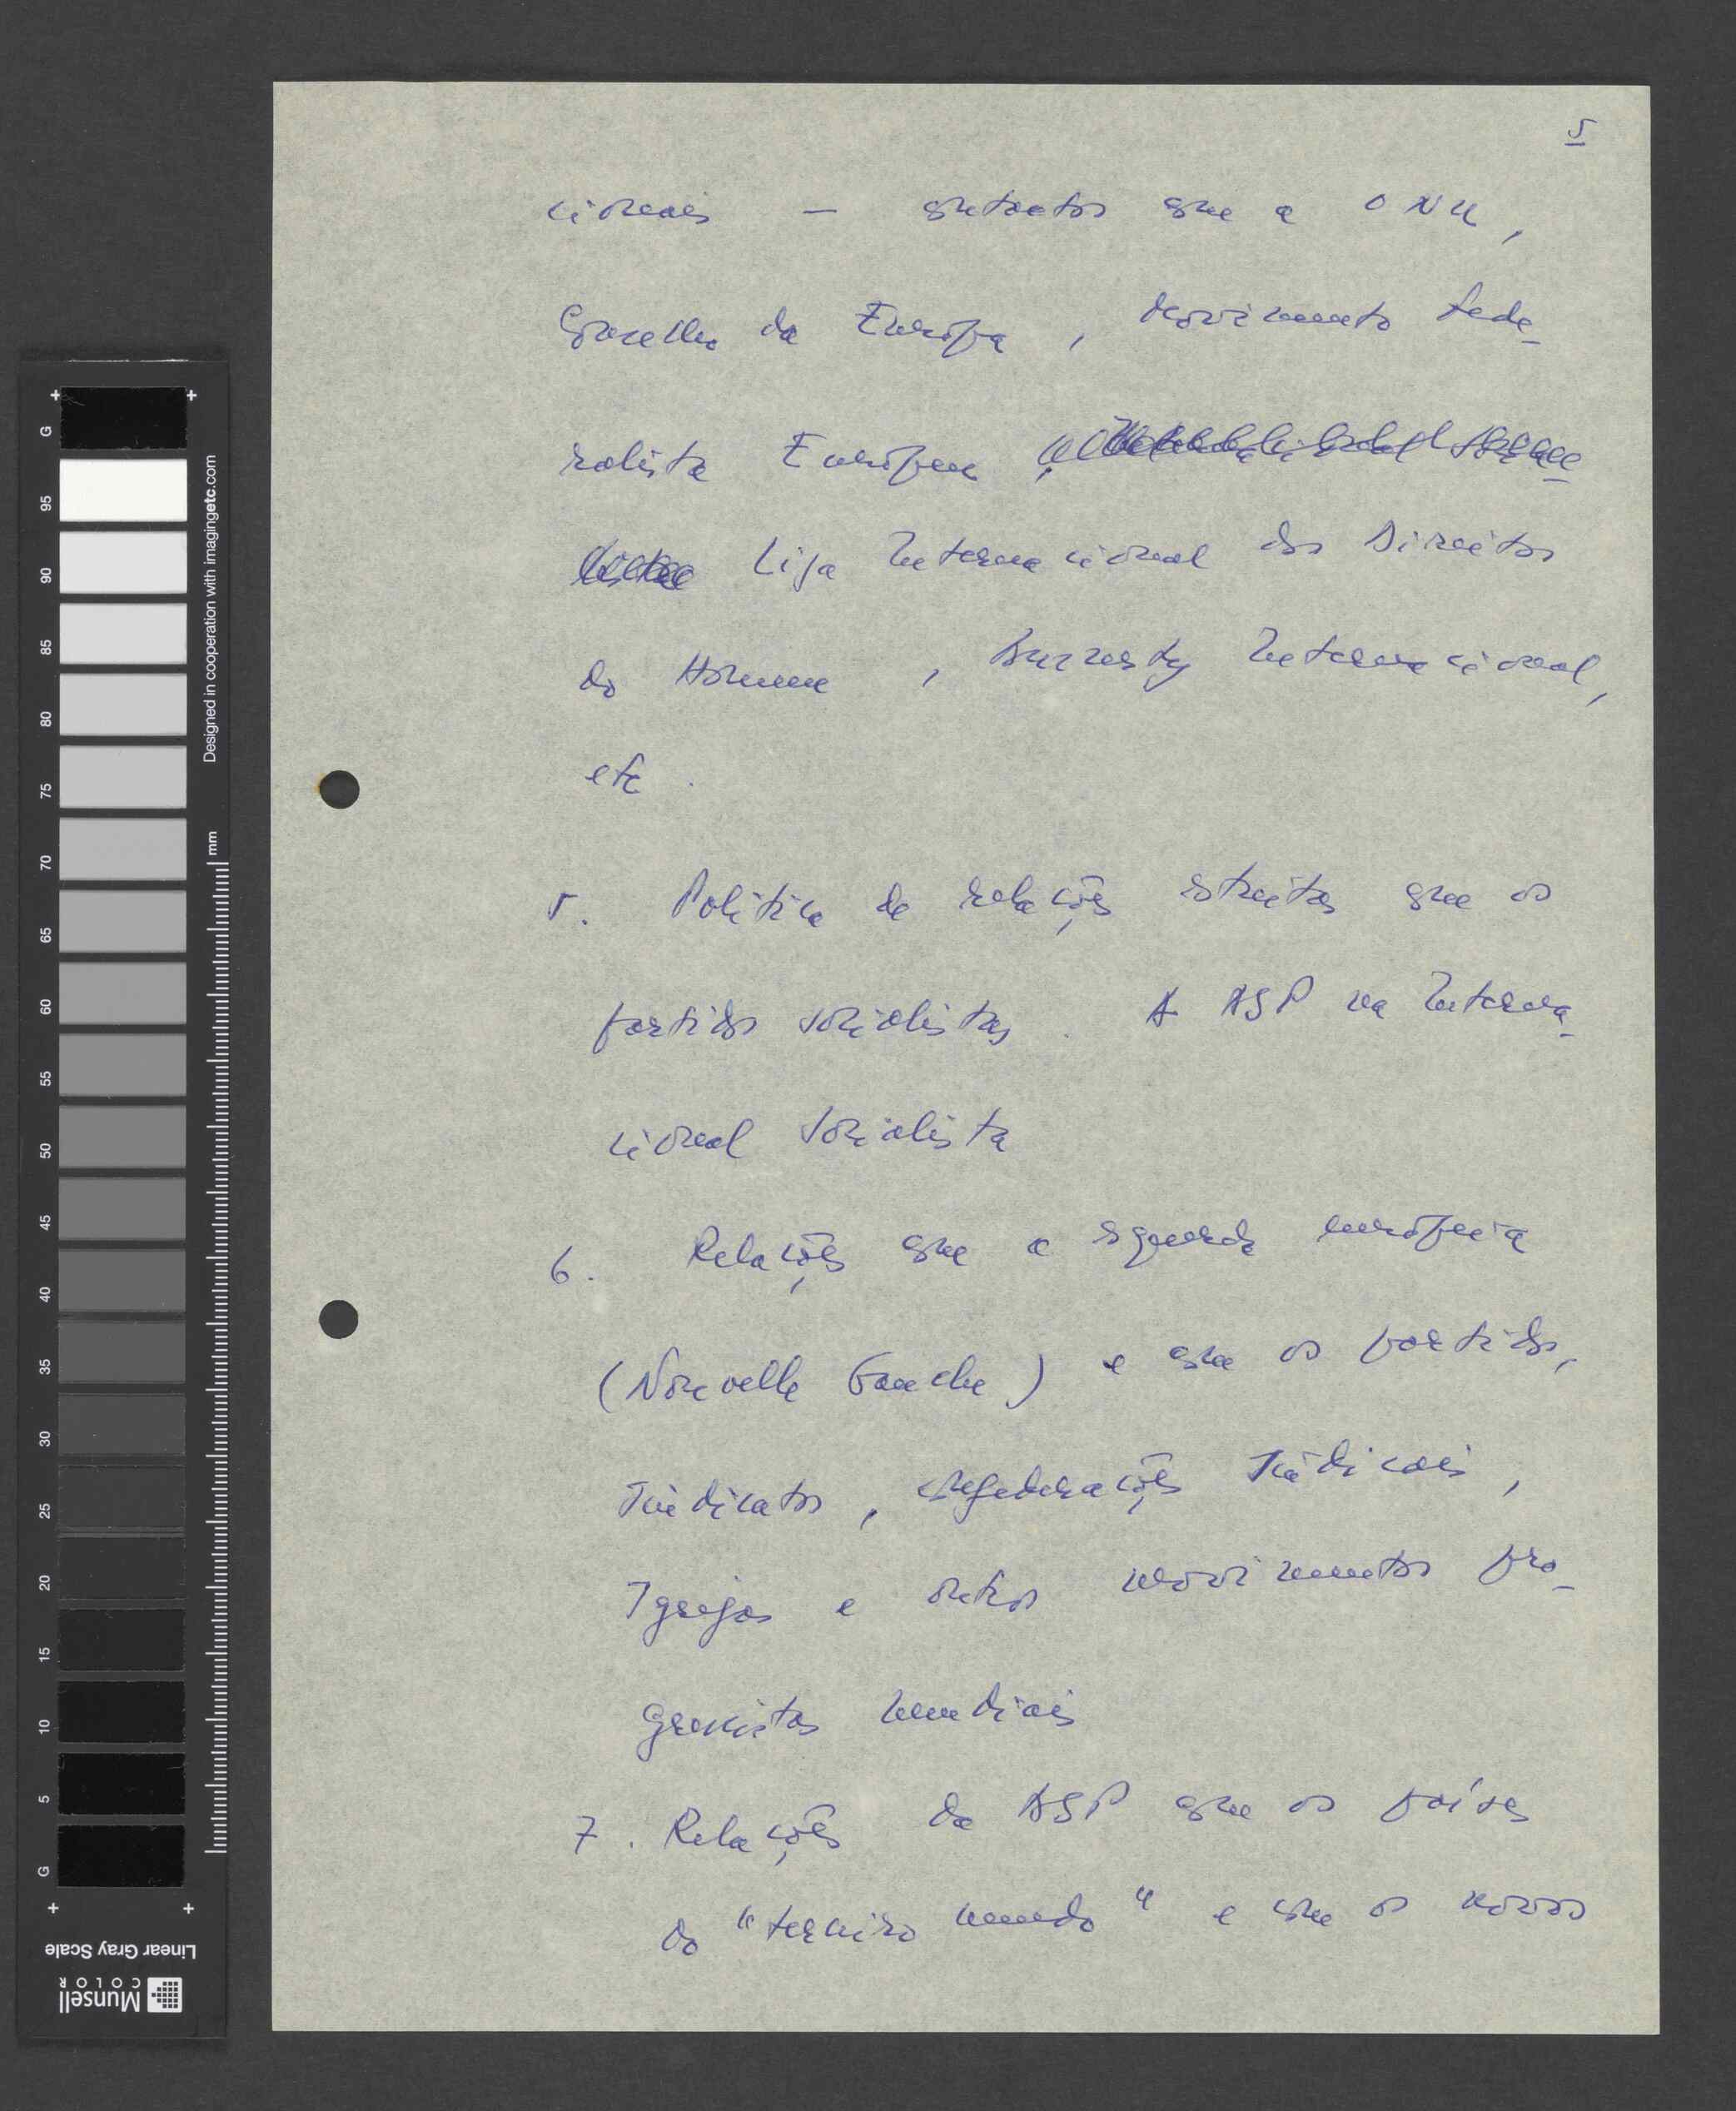 5
cionais — contactos com a ONU,
Conselho da Europa, Movimento Fede-
ralista Europeu,
Liga Internacional dos Direitos
do Homem, Amnesty Internacional,
etc.
5. Política de relações estreitas com os
partidos socialistas. A ASP na Interna-
cional Socialista
6. Relações com a esquerda europeia
(Nouvelle Gauche) e com os partidos,
Sindicatos, confederações sindicais,
Igrejas e outros movimentos pro-
gressistas mundiais
7. Relações da ASP com os países
do "terceiro mundo" e com os novos
G 95 90 85 80 75 70 65 60 55 50 45 40 35 30 25 20 15 10 5 G
Designed in cooperation with imagingetc.com
mm
Linear Gray Scale
Munsell
COLOR